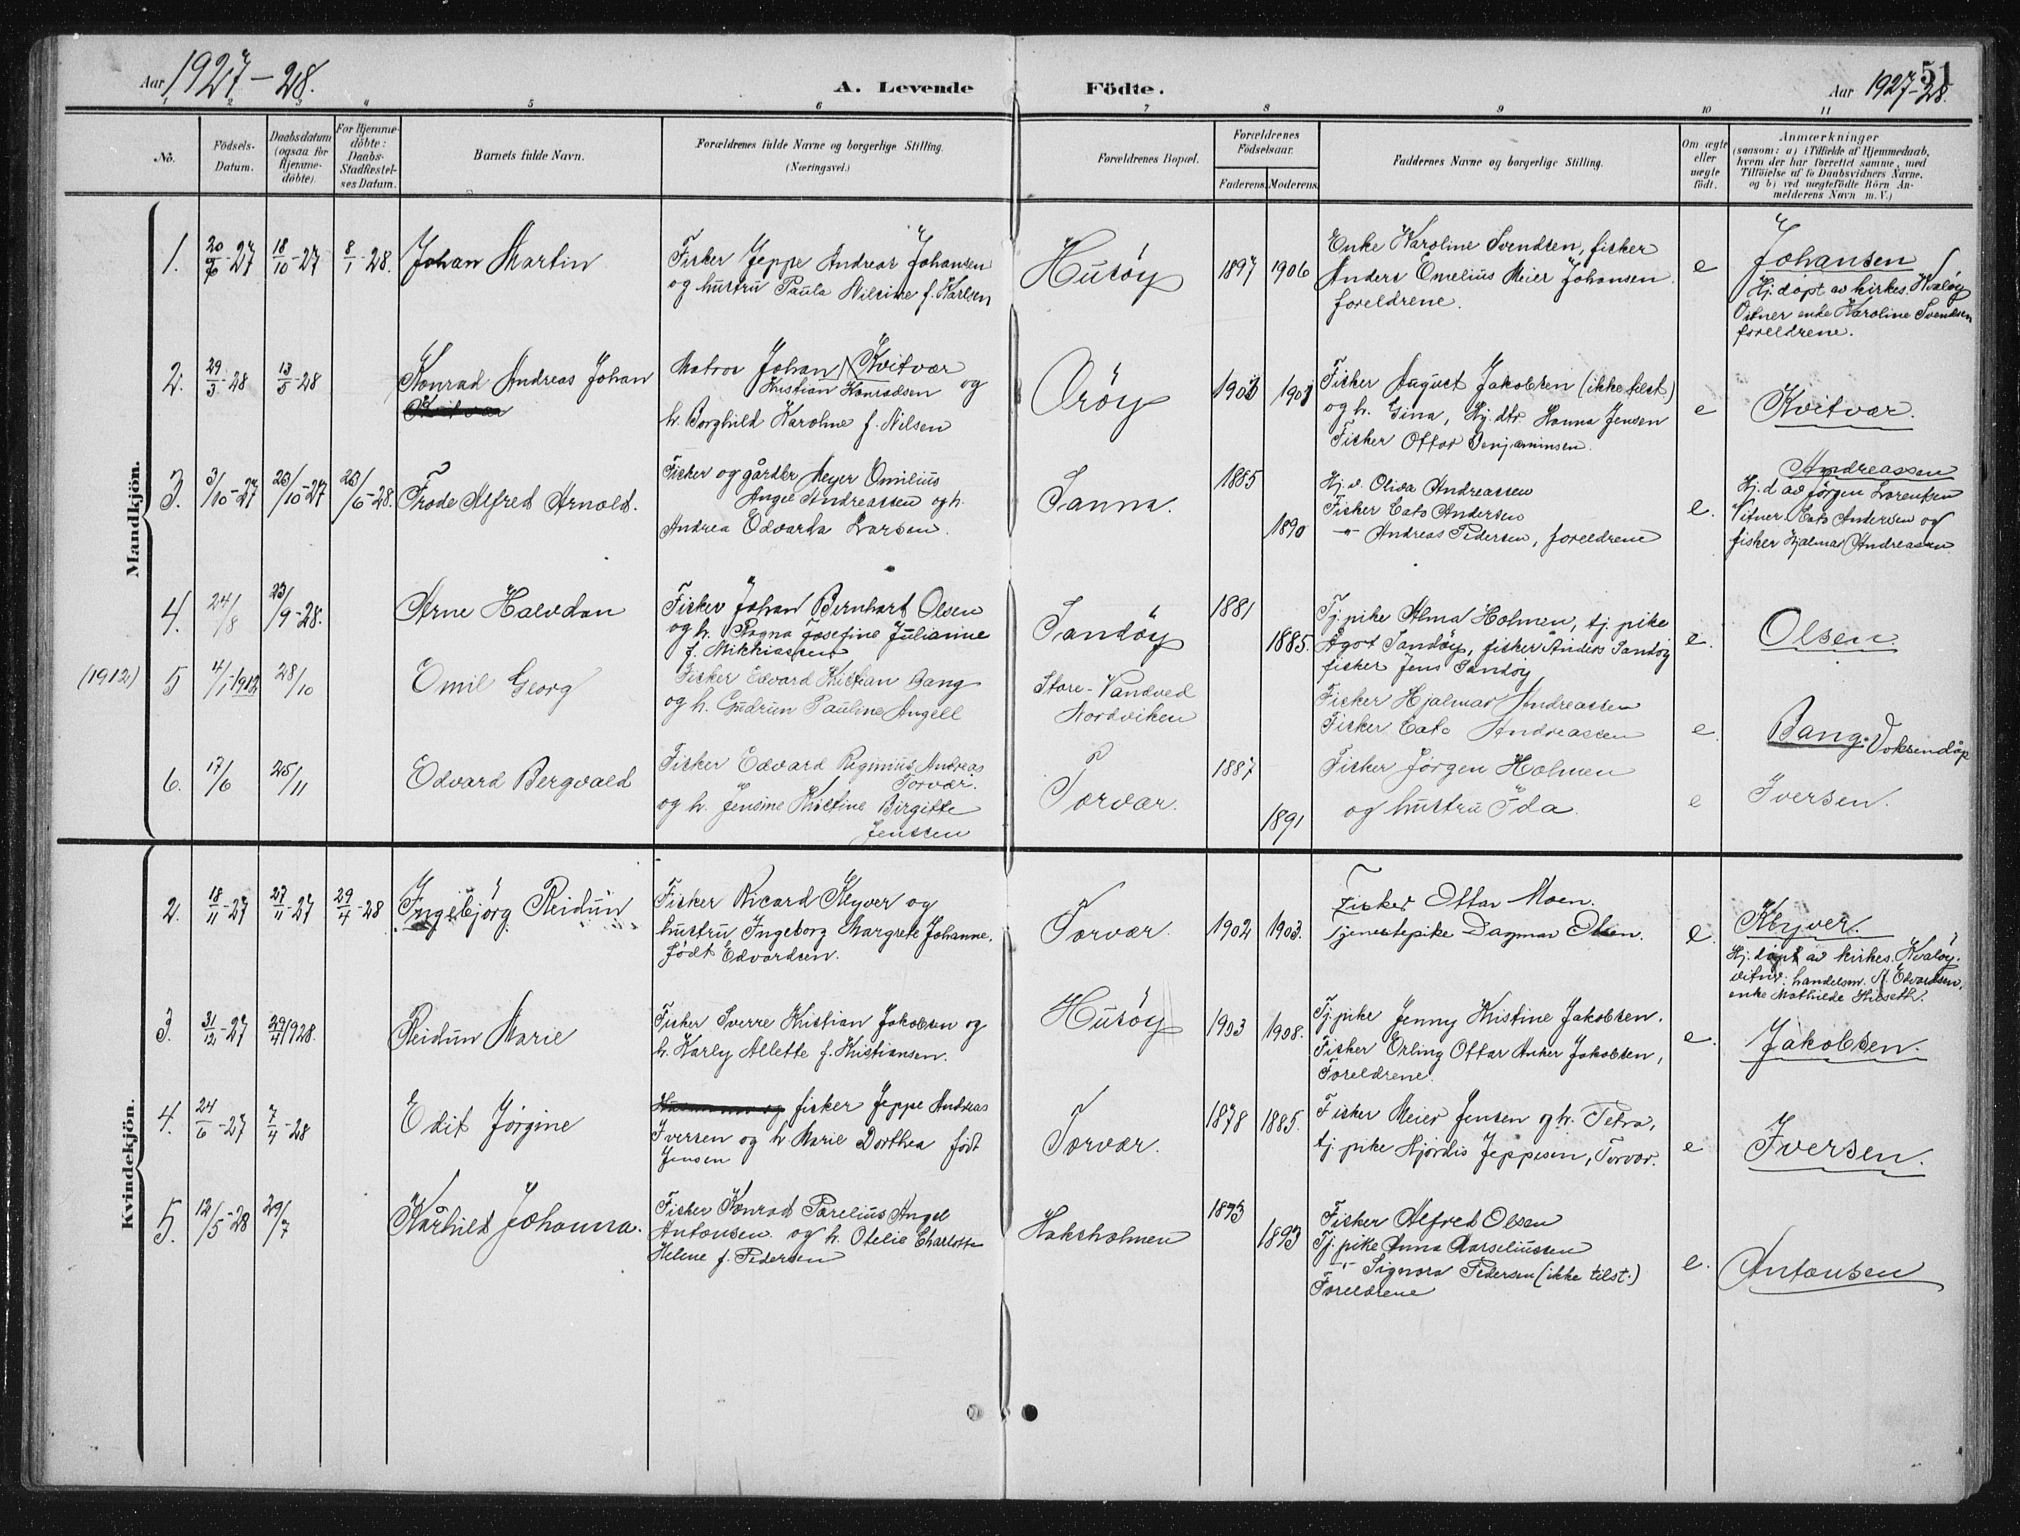 Aar 1927-28.
A. Levende Födte.
Aar 1927-28.
51
1 2 3 4 5 6 7 8 9 10 11
No.
Födsels-Datum.
Daabsdatum (ogsaa for Hjemme-döbte).
For Hjemme-döbte: Daabs-Stadfæstel-ses Datum.
Barnets fulde Navn.
Forældrenes fulde Navne og borgerlige Stilling. (Næringsvei.)
Forældrenes Bopæl.
Forældrenes Födselsaar.
Faderens. Moderens.
Faddernes Navne og borgerlige Stilling.
Om ægte eller uægte födt.
Anmærkninger
(saasom: a) i Tilfælde af Hjemmedaab,
hvem der har forrettet samme, med
Tilföielse af to Daabsvidners Navne,
og b) ved uægtefödte Börn An-
melderens Navn m. V.)
Mandkjön.
1. 20/6-27 18/10-27 8/1-28. Johan Martin
Fisker Jeppe Andreas Johansen
og hustru Paula Nilsine f. Karlsen
Husöy 1897 1906
Enke Karoline Svendsen, fisker
Anders Emelius Meier Johansen
foreldrene.
e
Johansen
Hj. döpt av kirkes. Kvaløy
Vitner enke Karoline Svendsen
foreldrene.
2. 29/3-28 13/5-28 Konrad Andreas Johan
Matros Johan Kvitvær
Kristian Konradsen og
h. Borghild Karoline f. Nilsen
Orøy 1903
Fisker August Jakobsen (ikke tilst.)
og h. Gina, Hj. dtr. Hanna Jensen
Fisker Ottar Benjaminsen.
e
Kvitvær.
3. 3/10-27 23/10-27 Frode Alfred Arnold.
Fisker og gårdbr Meyer Emilius
Angel Andreassen og h.
Andrea Edvarda Larsen.
Sanna. 1885 1890
Hj. v. Oliva Andreassen
Fisker Eato Andersen
-"- Andreas Pedersen, foreldrene
e.
Andreassen
Hj. d av Jørgen Lorentsen
Vitner Eato Andersen og
fisker Hjalmar Andreassen
4. 24/8 23/9-28. Arne Halvdan
Fisker Johan Bernhart Olsen
og h. Ragna Josefine Julianne
f. Mikkiassen
Sandöy 1881 1885.
Tj. pike Alma Holmen, tj. pike
Agot Sandøy, fisker Anders Sandøy
fisker Jens Sandøy
e.
Olsen
(1912) 5 4/1-1912 28/10 Emil Georg
Fisker Edvard Kristian Bang
og h. Gudrun Pauline Angell
Store-Vandved
Nordviken
Fisker Hjalmar Andreassen
Fisker Eato Andreassen
e.
Bang. Voksendåp
6. 17/6 25/11 Edvard Bergvald
Fisker Edvard Regimus Andreas
Torvær.
og h. Jensine Kristine Birgitte
Jenssen
Torvær. 1887 1891
Fisker Jörgen Holmen
og hustru Ida.
e
Iversen.
Kvindekjön.
2. 18/11-27 27/11-27 29/4-28 Ingebjörg Reidun
Fisker Ricard Klyver og
hustru Ingeborg Margrete Johanne.
født Edvardsen.
Torvær. 1902 1903.
Fisker Ottar Moen.
Tjenestepike Dagmar Olsen.
e.
Klyver.
Hj. döpt av kirkes. Kvaløy.
vitner: handelsm. A. Edvardsen,
enke Mathilde
3. 31/12-27 29/4 1928. Reidun Marie
Fisker Sverre Kristian Jakobsen og
h. Karly Allette f. Kristiansen.
Husöy 1903 1908.
Tj. pike Jenny Kristine Jakobsen.
Fisker Erling Ottar Anker Jakobsen,
Foreldrene.
e.
Jakobsen.
4. 24/6-27 7/4-28 Edit Jørgine
fisker Jeppe Andreas
Iversen og h Marie Dorthea født
Jensen
Torvær. 1878 1885.
Fisker Meier Jensen og h. Petra,
tj. pike Hjördis Jeppesen, Torvær.
e
Iversen.
5. 12/5-28 29/7 Kårhild Johanna.
Fisker Konrad Parelius Angel
Antonsen. og h. Otelie Charlotte
Helene f. Pedersen
Haksholmen 1893 1893
Fisker Alfred Olsen
Tj. pike Anna Marseliussen
-"- Signora Pedersen (ikke tilst.)
Foreldrene
e.
Antonsen